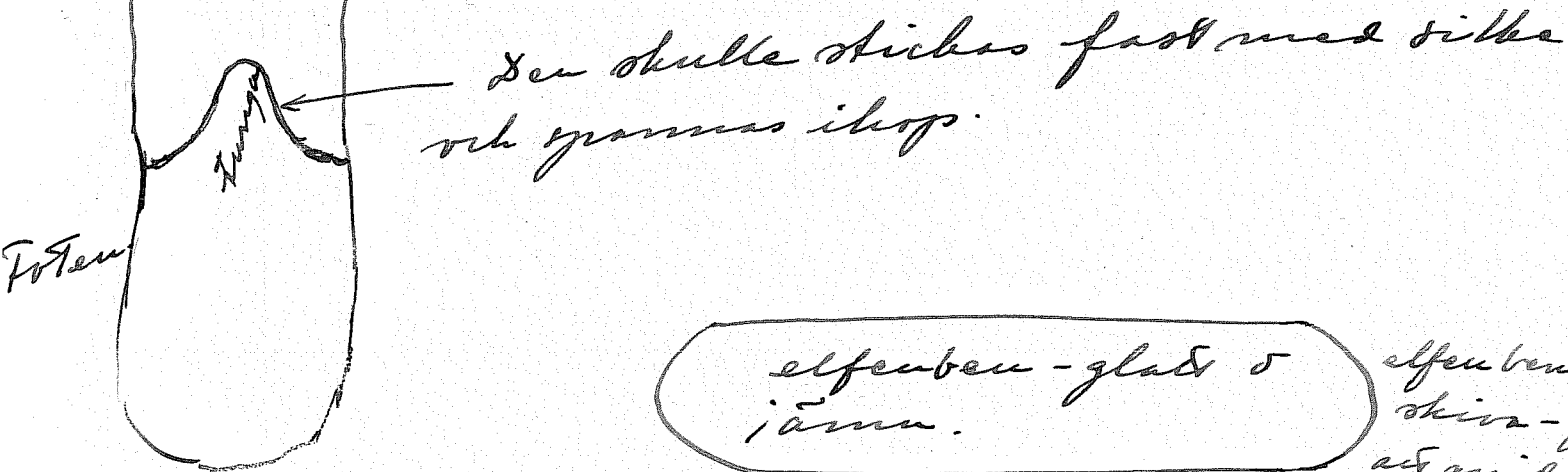 Den skulle stickas fast med silke
och spännas ihop.
Tunga
Foten
elfenben - glatt o
jämn.
elfenben
skiva -